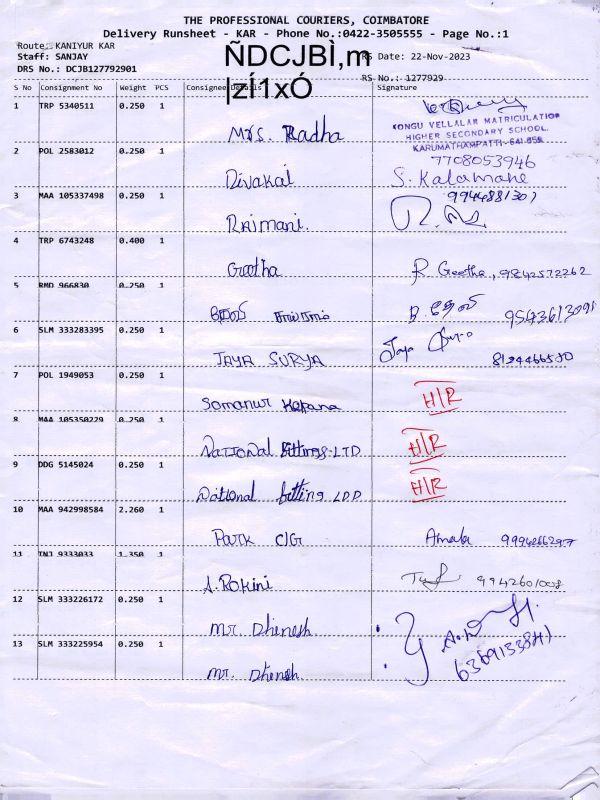 THE PROFESSIONAL COURIERS, COIMBATORE
Delivery Runsheet - KAR - Phone No.:0422-3505555 - Page No.:1
Route: KANIYUR KAR
Staff: SANJAY
RS Date: 22-Nov-2023
DRS No.: DCJB127792901
RS No.: 1277929
ÑDCJBÌ,m
|zÍ1xÓ
S No Consignment No Weight PCS Consignee Details Signature
1 TRP 5340511 0.250 1 Mrs. Radha
KONGU VELLALAR MATRICULATION
HIGHER SECONDARY SCHOOL.
KARUMATHAMPATTI - 641 659.
7708053946
2 POL 2583012 0.250 1 Divakal S. Kalamane
3 MAA 105337498 0.250 1 Rajmani. 9944881301
4 TRP 6743248 0.400 1 Geetha R Geetha, 9842572262
5 RMD 966830 0.250 1
6 SLM 333283395 0.250 1 JAYA SURYA Jaya Surya
7 POL 1949053 0.250 1 Somanur H/R
8 MAA 105350229 0.250 1 National Fittings-LTD H/R
9 DDG 5145024 0.250 1 National fitting LDD H/R
10 MAA 942998584 2.260 1 Park CIG
11 TNJ 9333033 1.350 1 A. Rokini
12 SLM 333226172 0.250 1 Mr. Dhinesh
13 SLM 333225954 0.250 1 Mr. Dhinesh